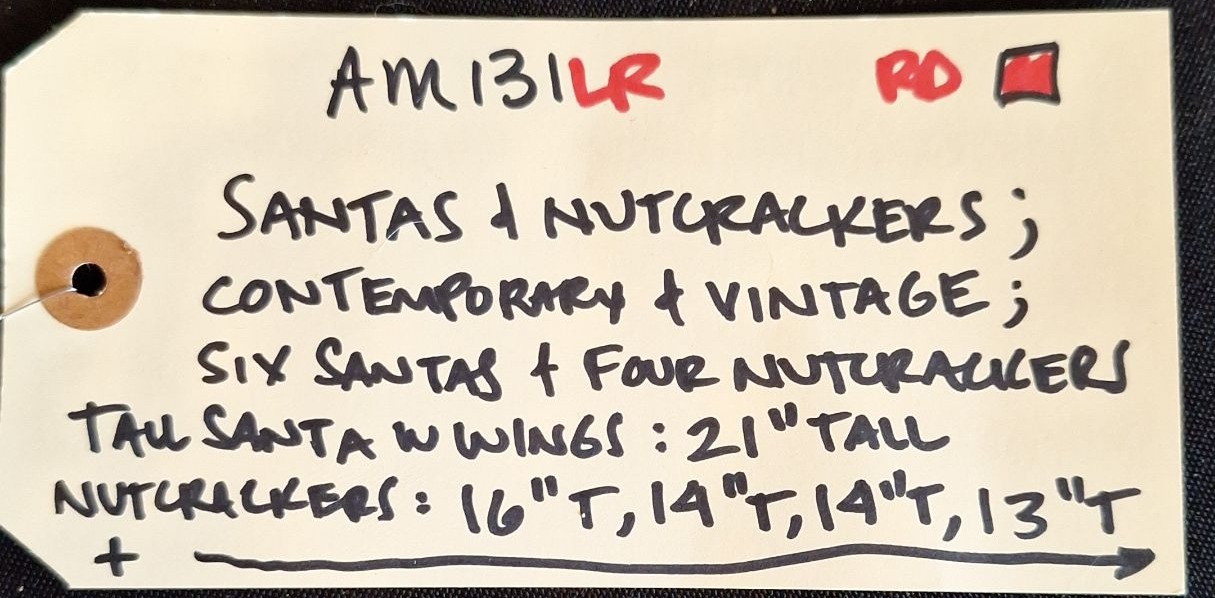 AM131LR RD
SANTAS & NUTCRACKERS;
CONTEMPORARY & VINTAGE;
SIX SANTAS & FOUR NUTCRACKERS
TALL SANTA W WINGS: 21" TALL
NUTCRACKERS: 16" T, 14" T, 14" T, 13" T
+ →